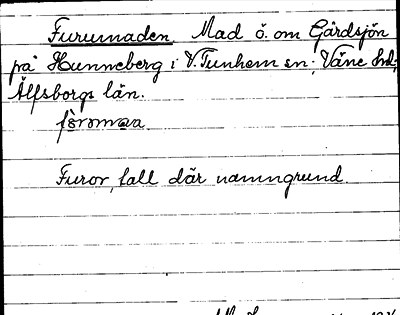 Furumaden. Mad ö. om Gårdsjön
på Hunneberg i V. Tunhem sn; Väne hd,
Älfsborgs län.
Furor, tall där namngrund.